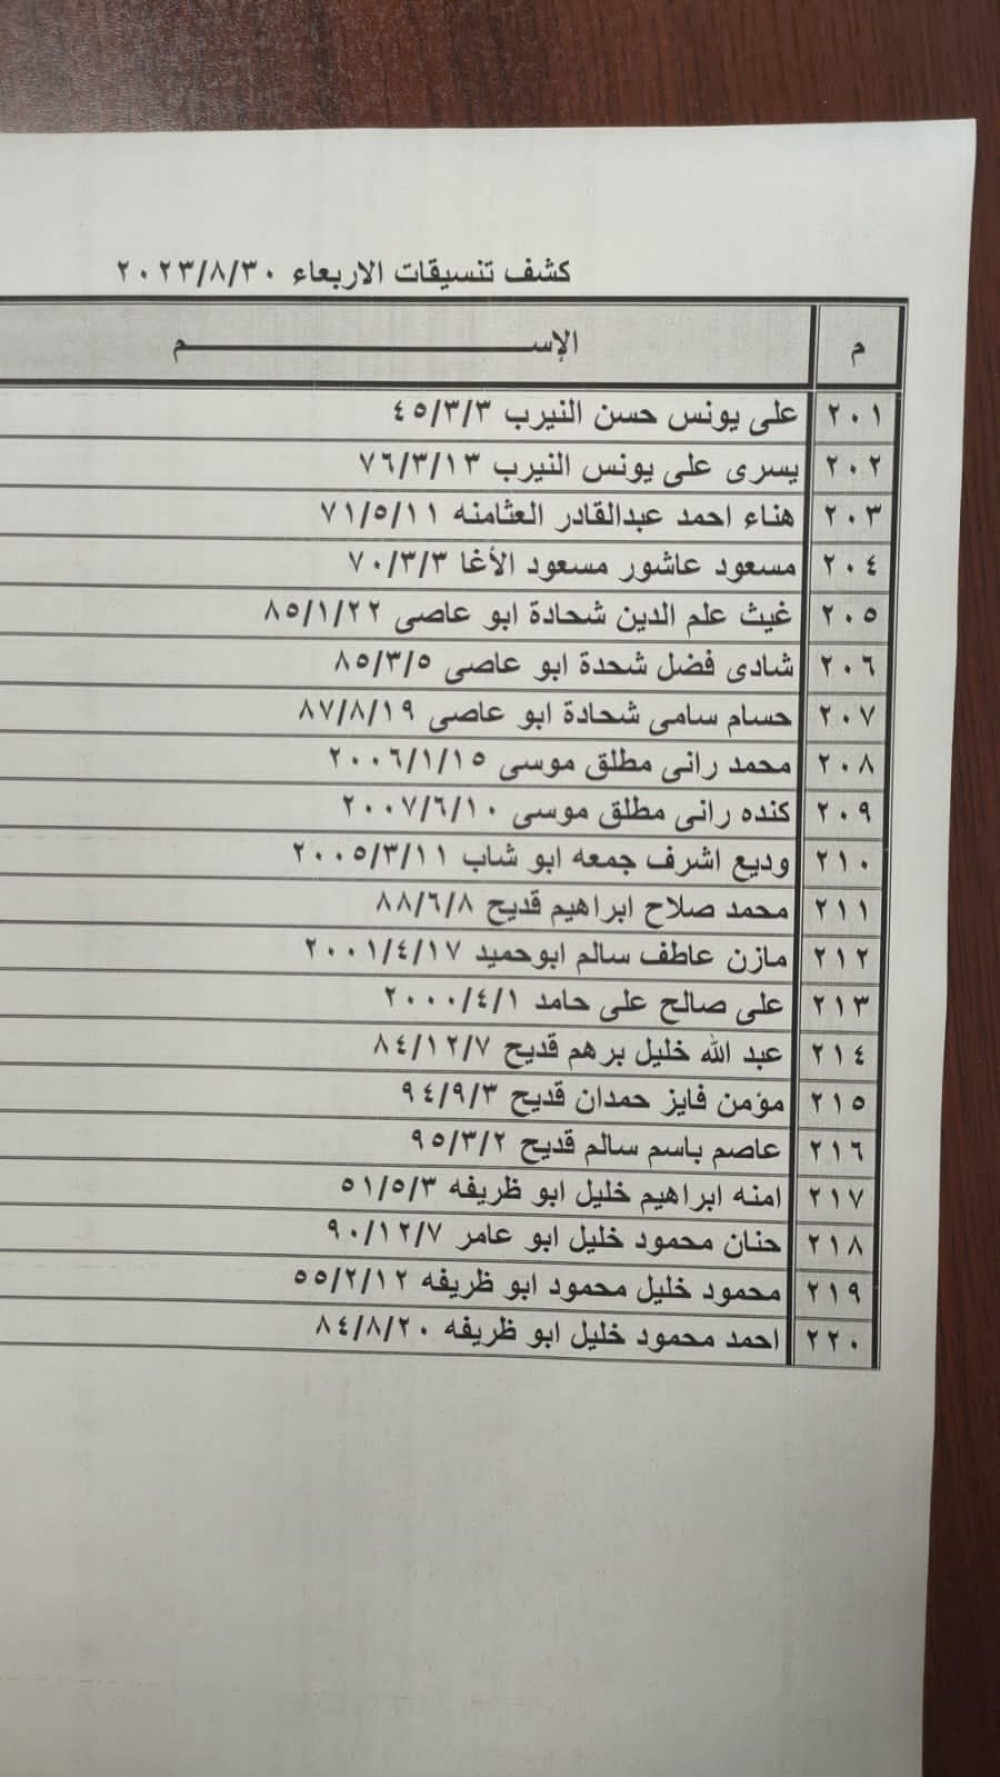 كشف تنسيقات الاربعاء ٢٠٢٣/٨/٣٠
م الإســـــــــــــــــــــم
٢٠١ على يونس حسن النيرب ٤٥/٣/٣
٢٠٢ يسرى على يونس النيرب ٧٦/٣/١٣
٢٠٣ هناء احمد عبدالقادر العثامنه ٧١/٥/١١
٢٠٤ مسعود عاشور مسعود الأغا ٧٠/٣/٣
٢٠٥ غيث علم الدين شحادة ابو عاصى ٨٥/١/٢٢
٢٠٦ شادى فضل شحدة ابو عاصى ٨٥/٣/٥
٢٠٧ حسام سامى شحادة ابو عاصى ٨٧/٨/١٩
٢٠٨ محمد رانى مطلق موسى ٢٠٠٦/١/١٥
٢٠٩ كنده رانى مطلق موسى ٢٠٠٧/٦/١٠
٢١٠ وديع اشرف جمعه ابو شاب ٢٠٠٥/٣/١١
٢١١ محمد صلاح ابراهيم قديح ٨٨/٦/٨
٢١٢ مازن عاطف سالم ابوحميد ٢٠٠١/٤/١٧
٢١٣ على صالح على حامد ٢٠٠٠/٤/١
٢١٤ عبد الله خليل برهم قديح ٨٤/١٢/٧
٢١٥ مؤمن فايز حمدان قديح ٩٤/٩/٣
٢١٦ عاصم باسم سالم قديح ٩٥/٣/٢
٢١٧ امنه ابراهيم خليل ابو ظريفه ٥١/٥/٣
٢١٨ حنان محمود خليل ابو عامر ٩٠/١٢/٧
٢١٩ محمود خليل محمود ابو ظريفه ٥٥/٢/١٢
٢٢٠ احمد محمود خليل ابو ظريفه ٨٤/٨/٢٠